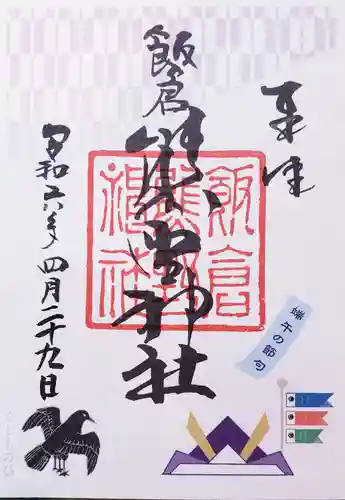 奉拝
飯倉
熊野神社
令和六年四月二十九日
端午の節句
飯倉
熊野
神社